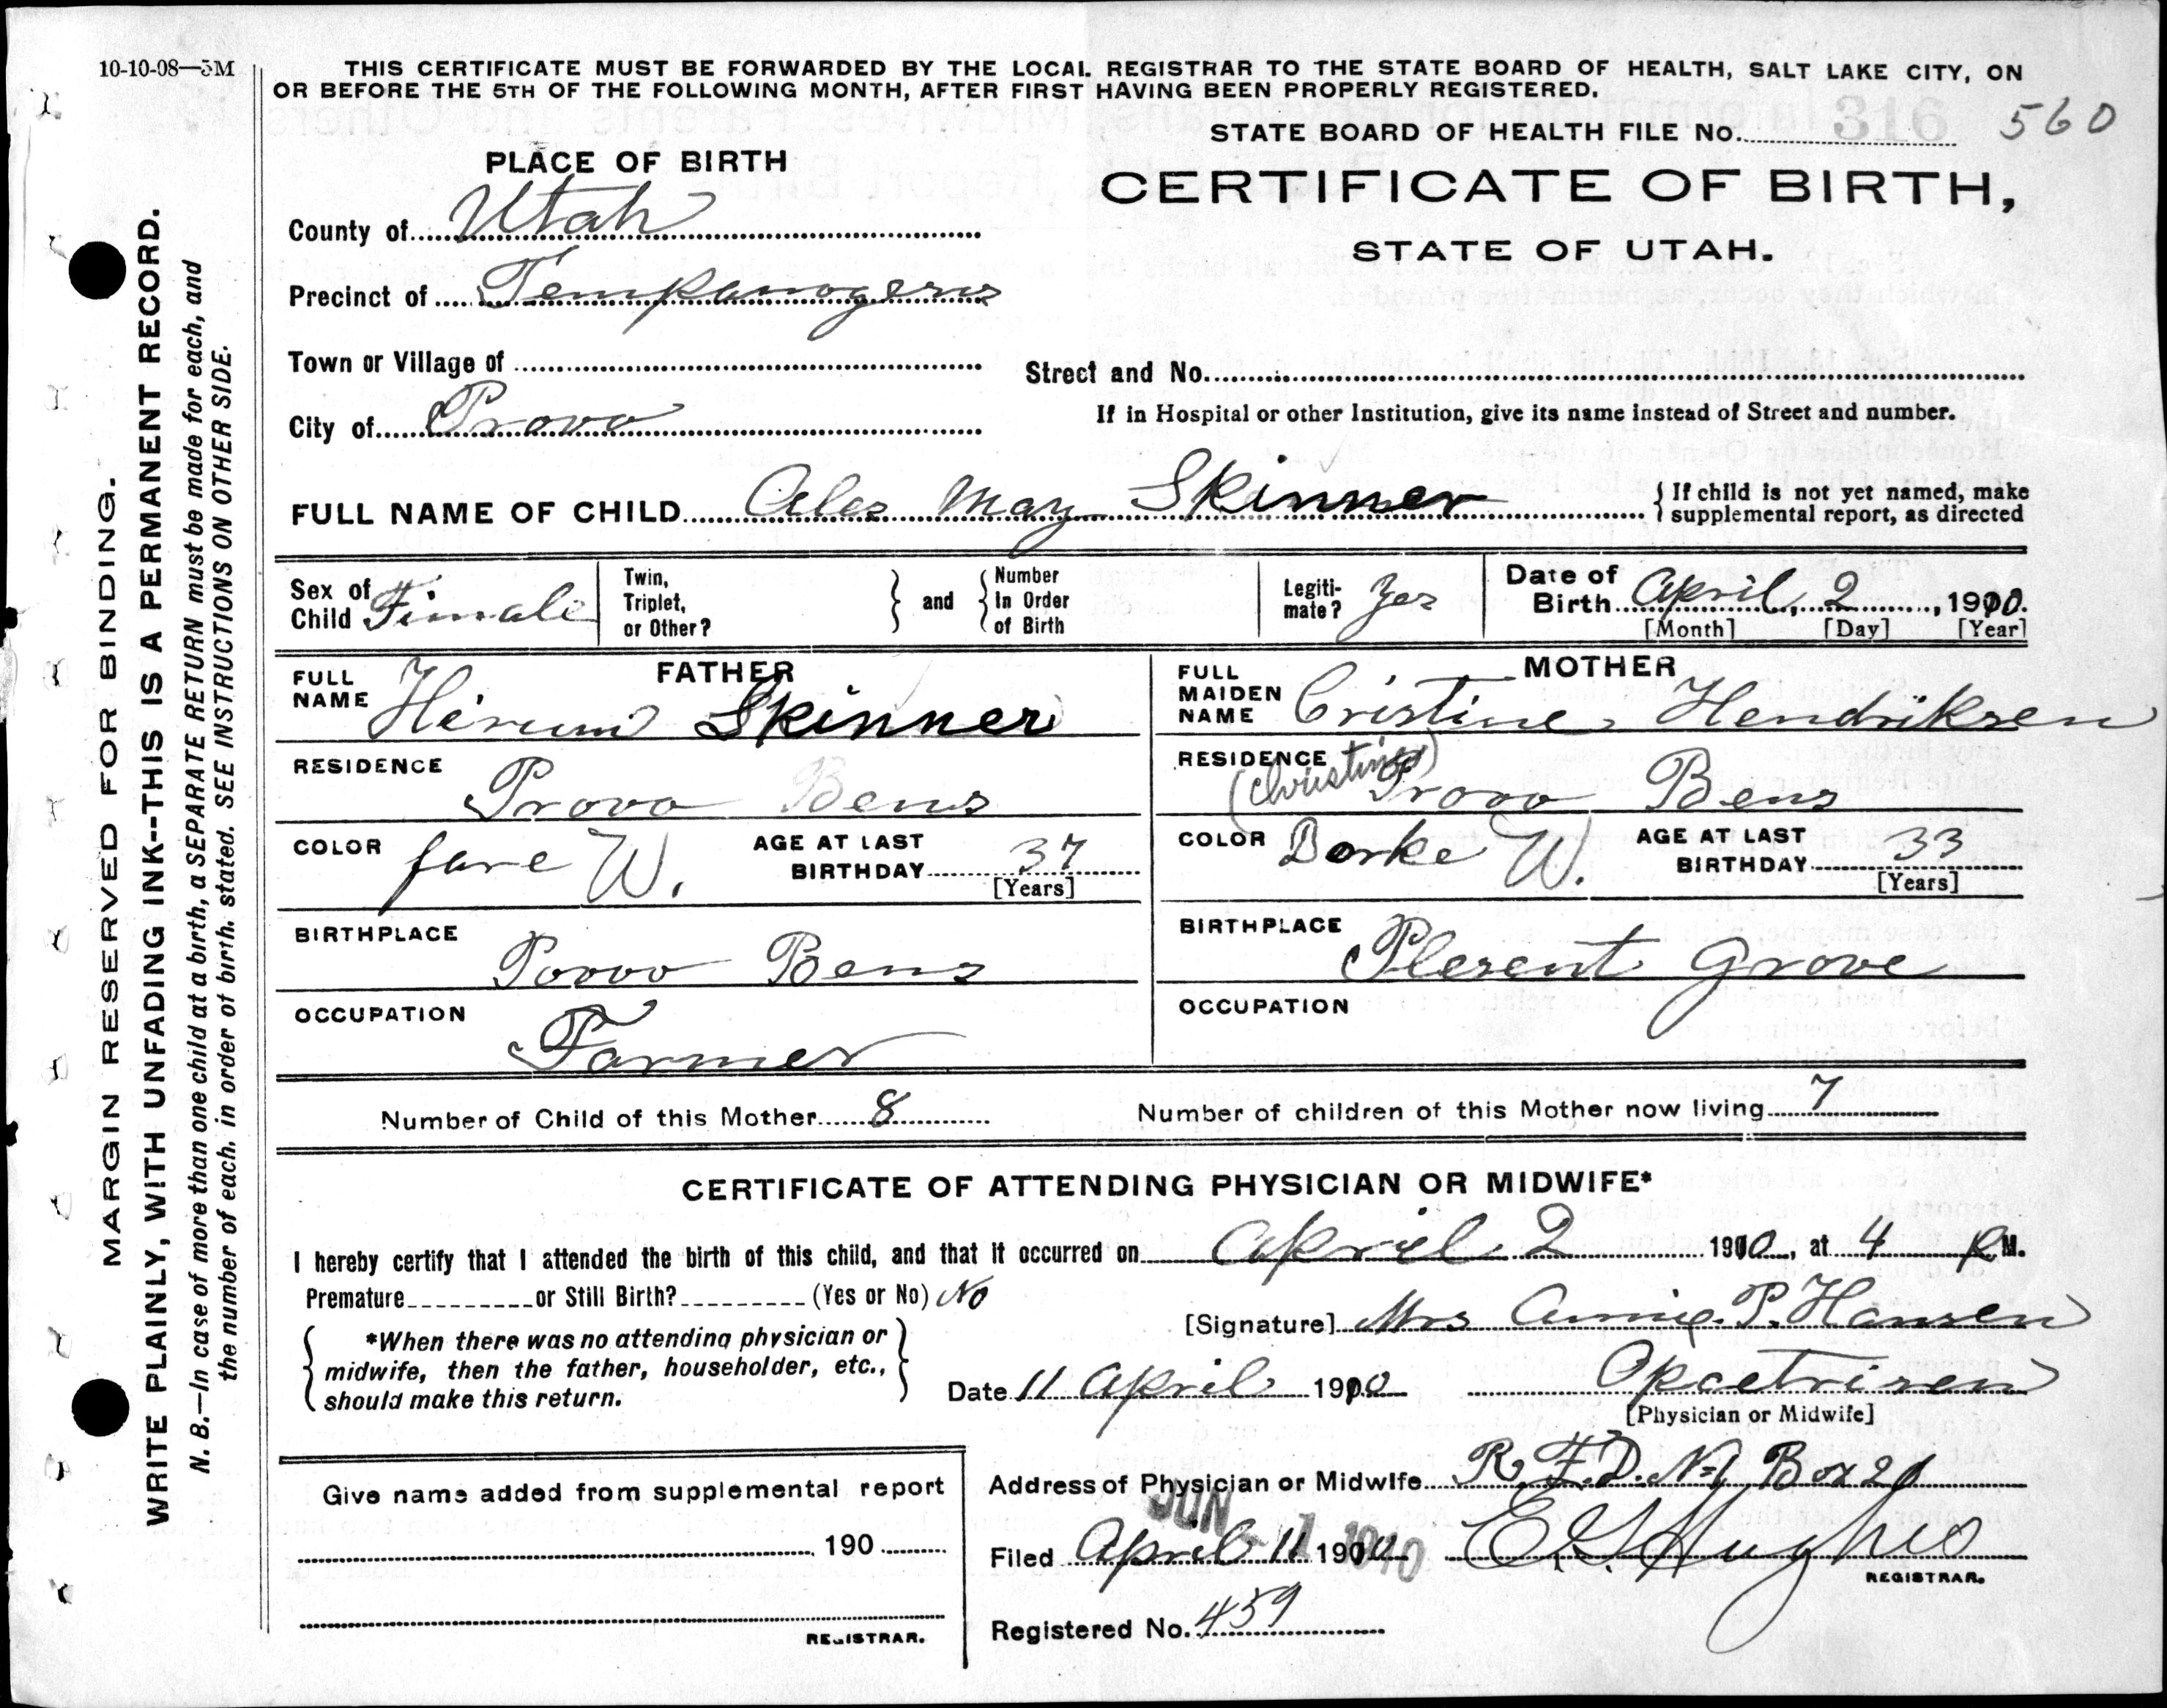 10-10-08—5M
THIS CERTIFICATE MUST BE FORWARDED BY THE LOCAL REGISTRAR TO THE STATE BOARD OF HEALTH, SALT LAKE CITY, ON
OR BEFORE THE 5TH OF THE FOLLOWING MONTH, AFTER FIRST HAVING BEEN PROPERLY REGISTERED.
STATE BOARD OF HEALTH FILE No. 316 560
PLACE OF BIRTH
CERTIFICATE OF BIRTH,
STATE OF UTAH.
County of Utah
Precinct of Tempanogens
Town or Village of
Street and No.
City of Provo
If in Hospital or other Institution, give its name instead of Street and number.
FULL NAME OF CHILD May Skinner
If child is not yet named, make
supplemental report, as directed
Sex of Child Fimale
Twin, Triplet, or Other?
and
Number In Order of Birth
Legitimate? Yes
Date of Birth April, 2, 1910.
[Month] [Day] [Year]
FATHER
FULL NAME Hirum Skinner
RESIDENCE Provo Bens
COLOR fare W.
AGE AT LAST BIRTHDAY 37
[Years]
BIRTHPLACE Povvo Bens
OCCUPATION Farmer
MOTHER
FULL MAIDEN NAME Cristine Hendriksen
(Christina)
RESIDENCE Provo Bens
COLOR Darke W.
AGE AT LAST BIRTHDAY 33
[Years]
BIRTHPLACE Plesent Grove
OCCUPATION
Number of Child of this Mother 8
Number of children of this Mother now living 7
CERTIFICATE OF ATTENDING PHYSICIAN OR MIDWIFE*
I hereby certify that I attended the birth of this child, and that it occurred on April 2 1910, at 4 P M.
Premature or Still Birth? (Yes or No) No
*When there was no attending physician or
midwife, then the father, householder, etc.,
should make this return.
[Signature] Mrs Annie. P. Hansen
Date 11 April 1910
Opcetrisen
[Physician or Midwife]
Give name added from supplemental report
190
REGISTRAR.
Address of Physician or Midwife R. F. D. N=1 Box
JUN -1 1910
Filed April 11 1910 E G Hughes
REGISTRAR.
Registered No. 459
MARGIN RESERVED FOR BINDING.
WRITE PLAINLY, WITH UNFADING INK--THIS IS A PERMANENT RECORD.
N. B.—In case of more than one child at a birth, a SEPARATE RETURN must be made for each, and
the number of each, in order of birth, stated. SEE INSTRUCTIONS ON OTHER SIDE.